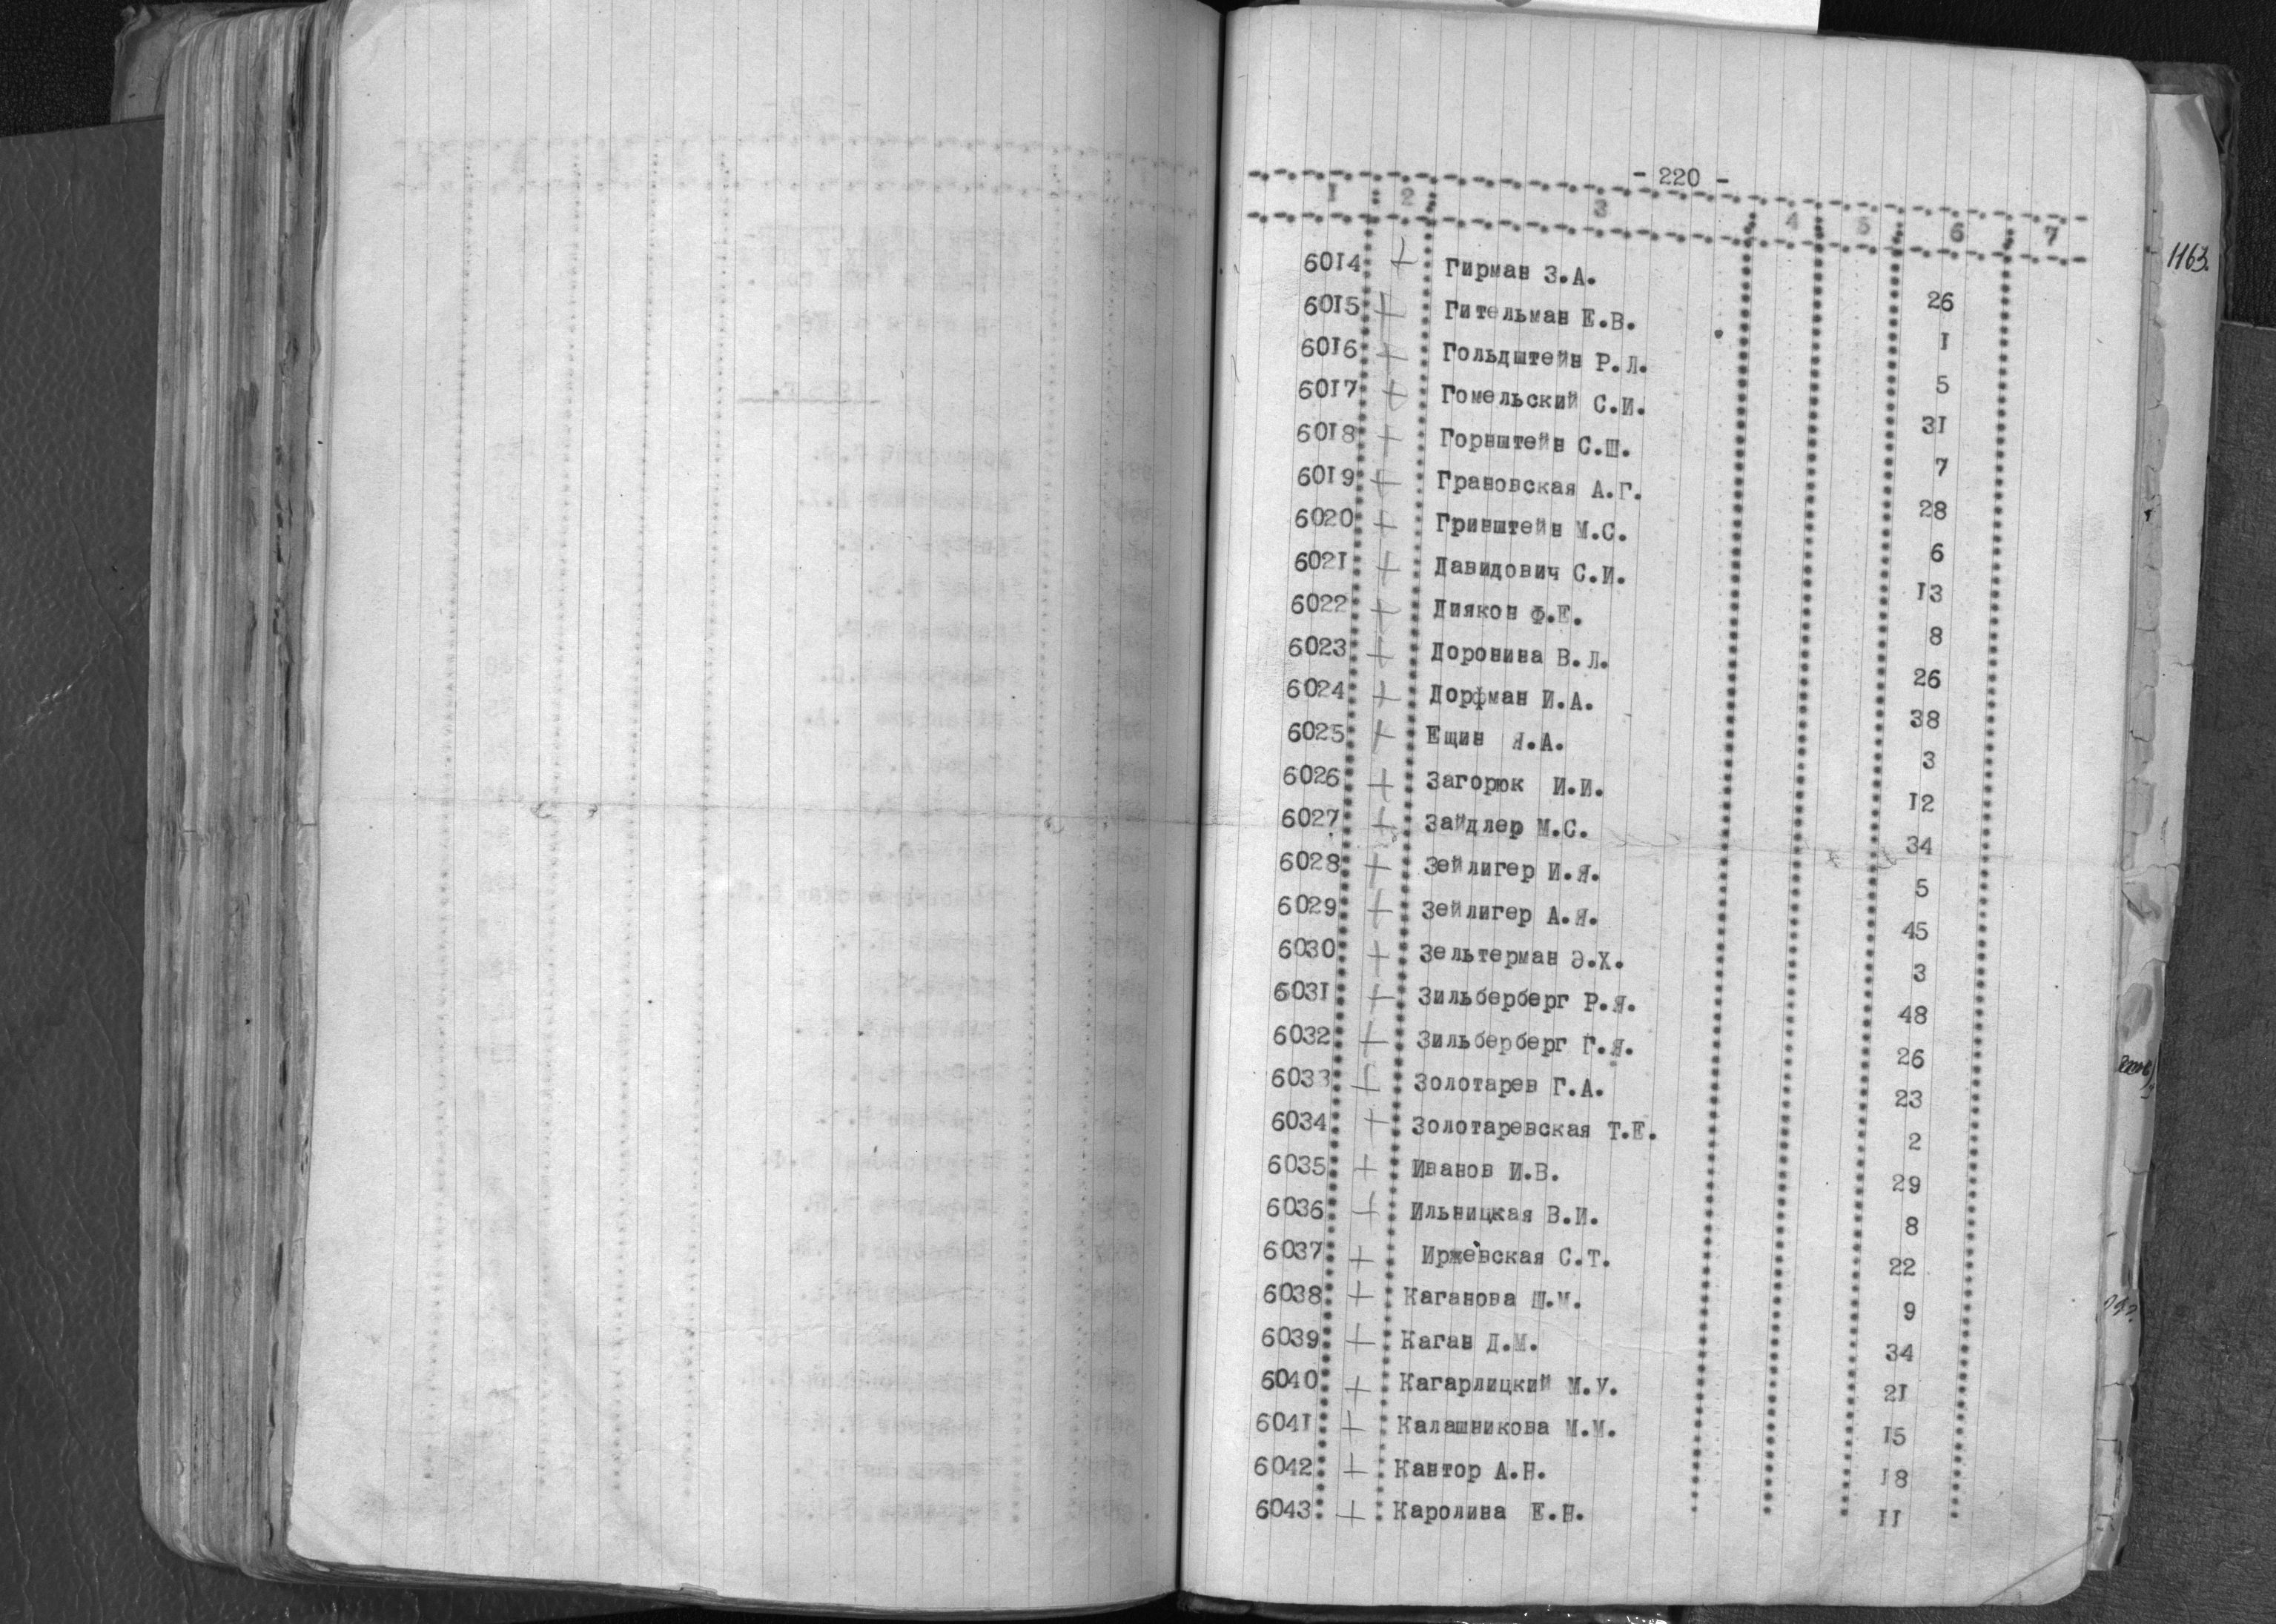 - 220 -
1 2 3 4 5 6 7
1163.
6014 + Гирман З.А. 26
6015 + Гительман Е.В. I
6016 + Гольдштейн Р.Л. 5
6017 + Гомельский С.И. 31
6018 + Горнштейн С.Ш. 7
6019 + Грановская А.Г. 28
6020 + Гринштейн М.С. 6
6021 + Давидович С.И. 13
6022 + Диякон Ф.Е. 8
6023 + Доронина В.Л. 26
6024 + Дорфман И.А. 38
6025 + Ещин Я.А. 3
6026 + Загорюк И.И. 12
6027 + Зайдлер М.С. 34
6028 + Зейлигер И.Я. 5
6029 + Зейлигер А.Я. 45
6030 + Зельтерман Э.Х. 3
6031 + Зильберберг Р.Я. 48
6032 + Зильберберг Г.Я. 26
6033 + Золотарев Г.А. 23
6034 + Золотаревская Т.Е. 2
6035 + Иванов И.В. 29
6036 + Ильницкая В.И. 8
6037 + Иржевская С.Т. 22
6038 + Каганова Ш.М. 9
6039 + Каган Д.М. 34
6040 + Кагарлицкий М.У. 21
6041 + Калашникова М.М. 15
6042 + Кантор А.Н. 18
6043 + Каролина Е.Н. 11